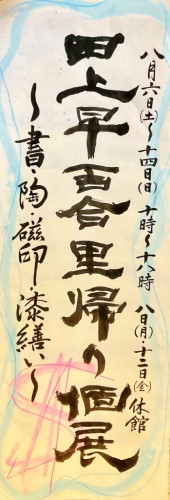 八月六日(土)~十四日(日) 十時~十八時 八日(月)・十二日(金)休館
田上早百合里帰り個展
~書・陶・磁印・漆繕い~